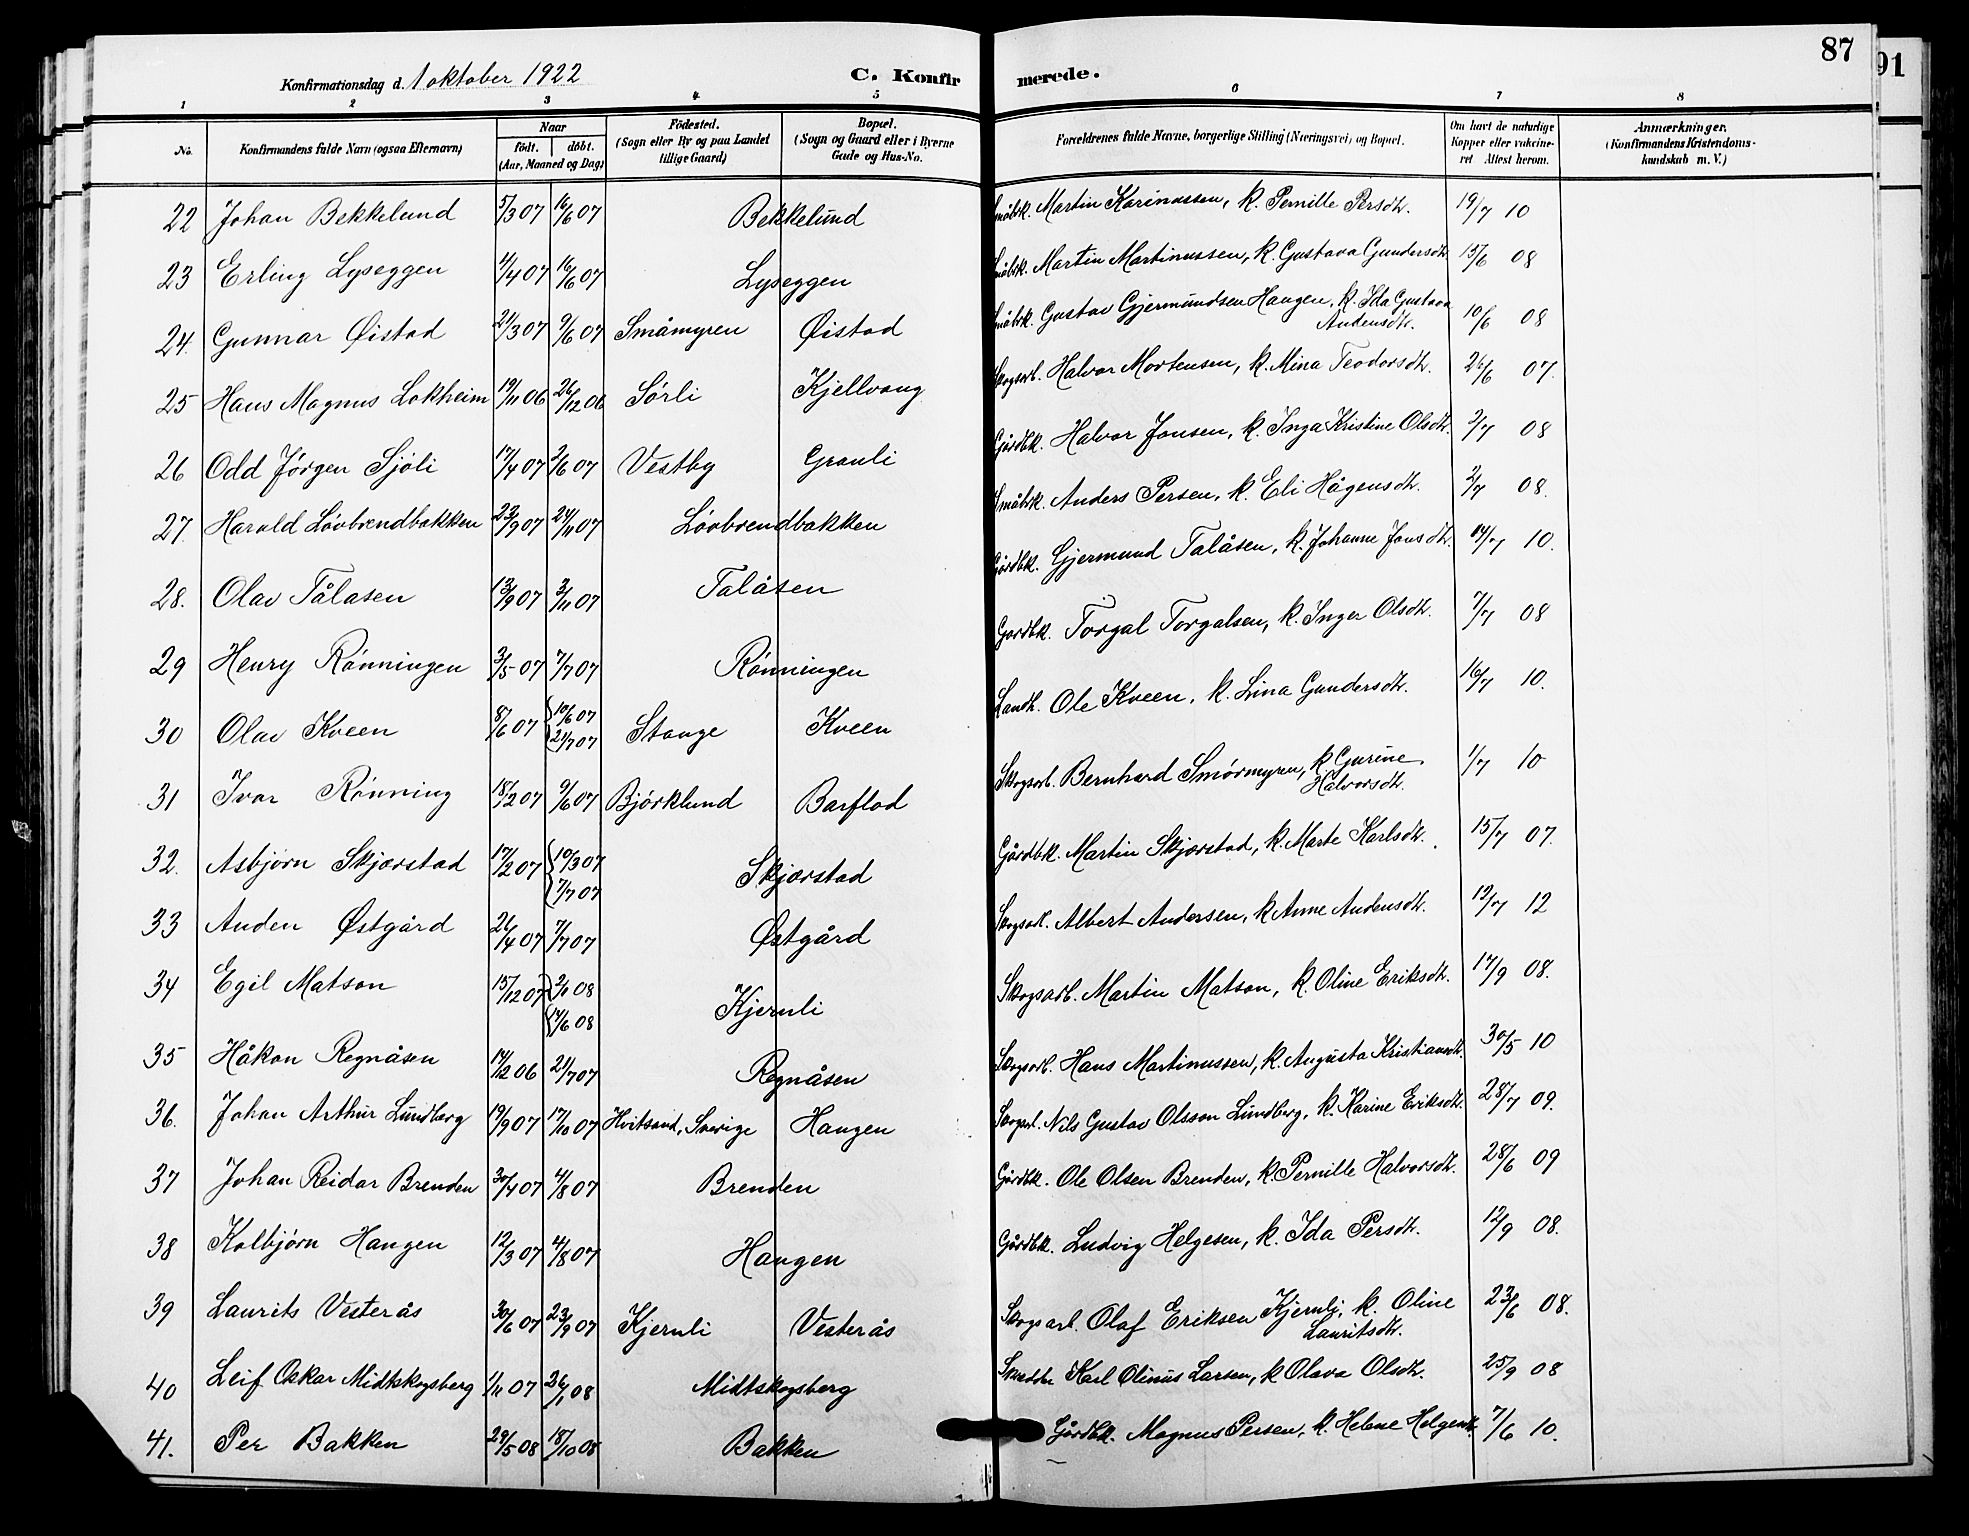 87
91
Konfirmationsdag d. 1 oktober 1922 C. Konfirmerede.
1 2 3 4 5 6 7 8
No. Konfirmandens fulde Navn (ogsaa Efternavn) Naar født. døbt. (Aar, Maaned og Dag) Födested. (Sogn eller By og paa Landet tillige Gaard) Bopæl. (Sogn og Gaard eller i Byerne Gade og Hus-No. Forældrenes fulde Navne, borgerlige Stilling (Næringsvei) og Bopæl. Om havt de naturlige Kopper eller vakcineret Attest herom. Anmærkninger. (Konfirmandens Kristendomskundskab m. V.)
22 Johan Bekkelund 5/3 07 16/6 07 Bekkelund Småbk. Martin Karinussen, k. Pernille Persdtr. 19/7 10
23 Erling Lyseggen 4/4 07 16/6 07 Lyseggen Småbk. Martin Martinussen, k. Gustava Gundersdtr. 15/6 08
24. Gunnar Øistad 21/3 07 9/6 07 Småmyren Øistad Småbk. Gustav Gjermundsen Haugen, k. Ida Gustava Audensdtr. 10/6 08
25 Hans Magnus Lokheim 19/11 06 26/12 06 Sørli Kjellvang Skogsarb. Halvor Mortensen, k. Mina Teodorsdtr. 26/6 07.
26 Odd Jørgen Sjöli 17/4 07 2/6 07 Vestby Granli Gårdbk. Halvor Jonsen, k. Inga Kristine Olsdtr. 2/7 08
27. Harald Lövbrendbakken 23/9 07 24/11 07 Lövbrendbakken Småbk. Anders Persen, k. Eli Hågensdtr. 2/7 08.
28. Olav Tålasen 13/9 07 3/11 07 Talåsen Gårdbk. Gjermund Talåsen, k. Johanne Jonsdtr. 14/7 10.
29 Henry Rönningen 3/5 07 7/7 07 Rönningen Gardbk. Torgal Torgalsen, k. Inger Olsdtr. 7/7 08
30 Olav Kveen 8/6 07 10/6 07 21/7 07 Stange Kveen Landh. Ole Kveen, k. Lina Gundersdtr. 16/7 10.
31 Ivar Rönning 18/2 07 9/6 07 Bjørklund Barflod Skogsarb. Bernhard Smörmyren, k Gurine Halvorsdtr. 1/7 10
32. Asbjørn Skjærstad 17/2 07 10/3 07 7/7 07 Skjærstad Gårdbk. Martin Skjærstad, k. Marte Karlsdtr. 15/7 07.
33 Auden Østgård 26/4 07 7/7 07 Østgård Skogsarb. Albert Andersen, k Anne Audensdtr. 12/7 12
34 Egil Matson 15/12 07 2/1 08 14/6 08 Kjernli Skogsarb. Martin Matson, k. Oline Eriksdtr. 17/9 08.
35 Håkon Regnåsen 14/12 06 21/7 07 Regnåsen Skogsarb. Hans Martinussen, k. Augusta Kristiansdtr. 30/5 10
36. Johan Arthur Lundberg 19/9 07 17/10 07 Hvitsand, Sverige Haugen Skogsarb. Nils Gustav Olsson Lundberg, k. Karine Eriksdtr. 28/7 09.
37 Johan Reidar Brenden 30/4 07 4/8 07 Brenden Gårdbk. Ole Olsen Brenden, k. Pernille Halvorsdtr. 28/6 09
38 Kolbjørn Haugen 12/3 07 4/8 07 Haugen Gårdbk. Ludvig Helgesen, k. Ida Persdtr. 12/9 08.
39 Laurits Vesterås 30/6 07 23/9 07 Kjernli Vesterås Skogsarb. Olaf Eriksen Kjernli, k. Oline Lauritsdtr. 23/6 08.
40 Leif Oskar Midtskogsberg 1/11 07 26/1 08 Midtskogsberg Skredder Karl Olinus Larsen, k Olava Olsdtr. 25/9 08
41. Per Bakken 29/5 08 18/10 08 Bakken Gårdbk. Magnus Persen, k. Helene Helgesdtr. 7/6 10.